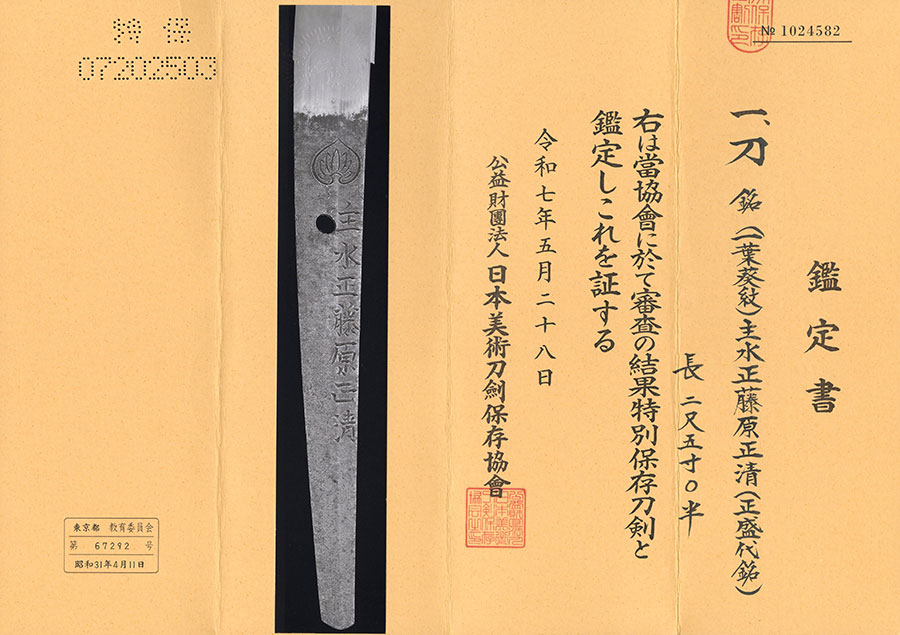 № 1024582
鑑定書
一、刀 銘(一葉葵紋)主水正藤原正清(正盛代銘)
長 二尺五寸〇半
右は當協會に於て審査の結果特別保存刀剣と
鑑定しこれを証する
令和七年五月二十八日
公益財團法人 日本美術刀劍保存協會
主水正藤原正清
特 保
07202503
東京都 教育委員会
第 67292 号
昭和31年4月11日